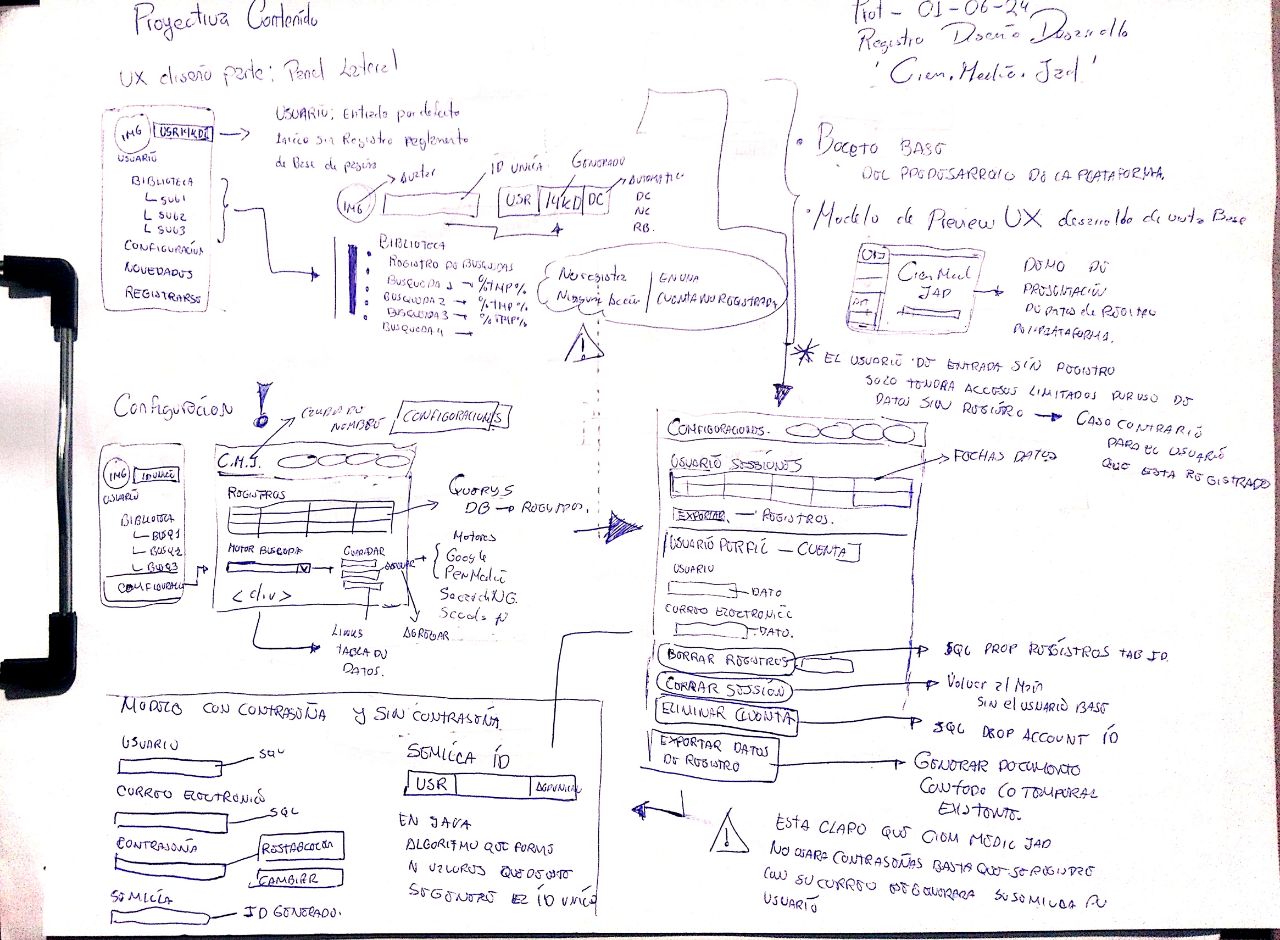 Proyectiva Contenido
Prot - 01-06-24
Registro Diseño Desarrollo
'Cien.Medic.Jad'
UX diseño parte: Panel Lateral
IMG
USUARIO
BIBLIOTECA
SUB1
SUB2
SUB3
CONFIGURACIÓN
NOVEDADES
REGISTRARSE
USUARIO: Entrada por defecto
Inicio sin Registro reglamento
de Base de pagina
Avatar
ID UNICA
GENERADO
IMG
USR 14KD DC
AUTOMATICO
DC
NC
RB.
BIBLIOTECA
REGISTRO DE BUSQUEDAS
BUSQUEDA 1 → %TMP%
BUSQUEDA 2 → %TMP%
BUSQUEDA 3 → %TMP%
BUSQUEDA 4 →
No registra
Ninguna Acción
EN UNA
CUENTA NO REGISTRADA
!
• BOCETO BASE
DEL PREDESARROLLO DE LA PLATAFORMA.
• Modelo de Preview UX desarrollo de venta Base
Cien Med
JAD
DEMO DE
PRESENTACIÓN
DE DATOS de REGISTRO
EL USUARIO DE ENTRADA SIN REGISTRO
SOLO TENDRA ACCESOS LIMITADOS POR USO DE
DATOS SIN REGISTRO → CASO CONTRARIO
PARA EL USUARIO
QUE ESTA REGISTRADO
Configuracion
!
NOMBRE
CONFIGURACIONES
IMG
USUARIO
BIBLIOTECA
BUSQ1
BUSQ2
BUSQ3
C.M.J.
REGISTROS
MOTOR BUSQUEDA
GUARDAR
AGREGAR
<div>
QUERYS
DB → REGISTROS.
Motores
Google
PenMedic
LINKS
TABLA DE
DATOS.
AGREGAR
CONFIGURACIONES.
USUARIO SESSIONES
FECHAS DATOS
EXPORTAR — REGISTROS.
USUARIO PERFIL — CUENTA
USUARIO
DATO
CORREO ELECTRONICO
DATO.
BORRAR REGISTROS
SQL PROP REGISTROS TAB ID.
CERRAR SESSIÓN
Volver al Main
SIN el USUARIO BASE
ELIMINAR CUENTA
SQL DROP ACCOUNT ID
EXPORTAR DATOS
DE REGISTRO
GENERAR DOCUMENTO
CON TODO LO TEMPORAL
EXISTENTE.
MODELO CON CONTRASEÑA Y SIN CONTRASEÑA
USUARIO
SQL
CORREO ELECTRONICO
SQL
CONTRASEÑA
RESTABLECER
CAMBIAR
SEMILLA
ID GENERADO.
SEMILLA ID
USR
EN JAVA
ALGORITMO QUE FORME
N VALORES QUE DE ESTE
SE GENERE EL ID UNICO
!
ESTA CLARO QUE CIEM MEDIC JAD
NO USARA CONTRASEÑAS BASTA QUE SE REGISTRE
CON SU CORREO SE GENERARA SU SEMILLA DE
USUARIO